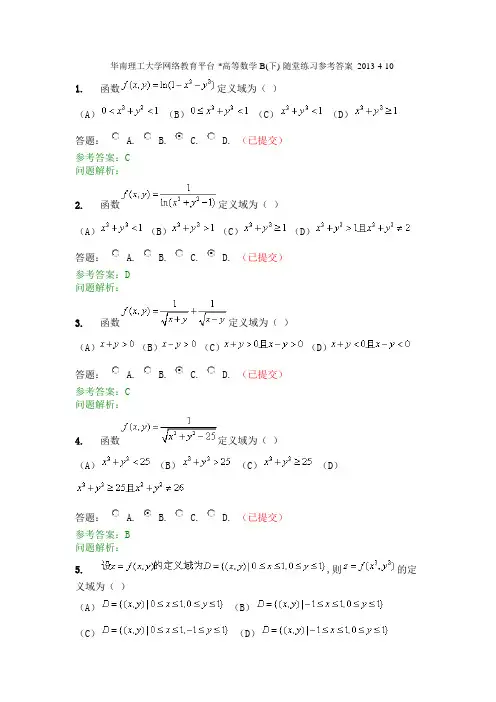 华南理工大学网络教育平台 *高等数学 B(下)-随堂练习参考答案 2013-4-10
1. 函数 f(x,y)=ln(1-x²-y²) 定义域为（ ）
（A）0<x²+y²<1（B）0≤x²+y²<1（C）x²+y²<1（D）x²+y²≥1
答题： A. B. C. D. （已提交）
参考答案：C
问题解析：
2. 函数 f(x,y)=1/ln(x²+y²-1) 定义域为（ ）
（A）x²+y²<1（B）x²+y²>1（C）x²+y²≥1（D）x²+y²>1且x²+y²≠2
答题： A. B. C. D. （已提交）
参考答案：D
问题解析：
3. 函数 f(x,y)=1/√(x+y)+1/√(x-y) 定义域为（ ）
（A）x+y>0（B）x-y>0（C）x+y>0且x-y>0（D）x+y<0且x-y<0
答题： A. B. C. D. （已提交）
参考答案：C
问题解析：
4. 函数 f(x,y)=1/√(x²+y²-25) 定义域为（ ）
（A）x²+y²<25（B）x²+y²>25（C）x²+y²≥25（D）
x²+y²≥25且x²+y²≠26
答题： A. B. C. D. （已提交）
参考答案：B
问题解析：
5. 设z=f(x,y)的定义域为D={(x,y)|0≤x≤1,0≤y≤1},则z=f(x²,y³)的定
义域为（ ）
（A）D={(x,y)|0≤x≤1,0≤y≤1}（B）D={(x,y)|-1≤x≤1,0≤y≤1}
（C）D={(x,y)|0≤x≤1,-1≤y≤1}（D）D={(x,y)|-1≤x≤1,0≤y≤1}